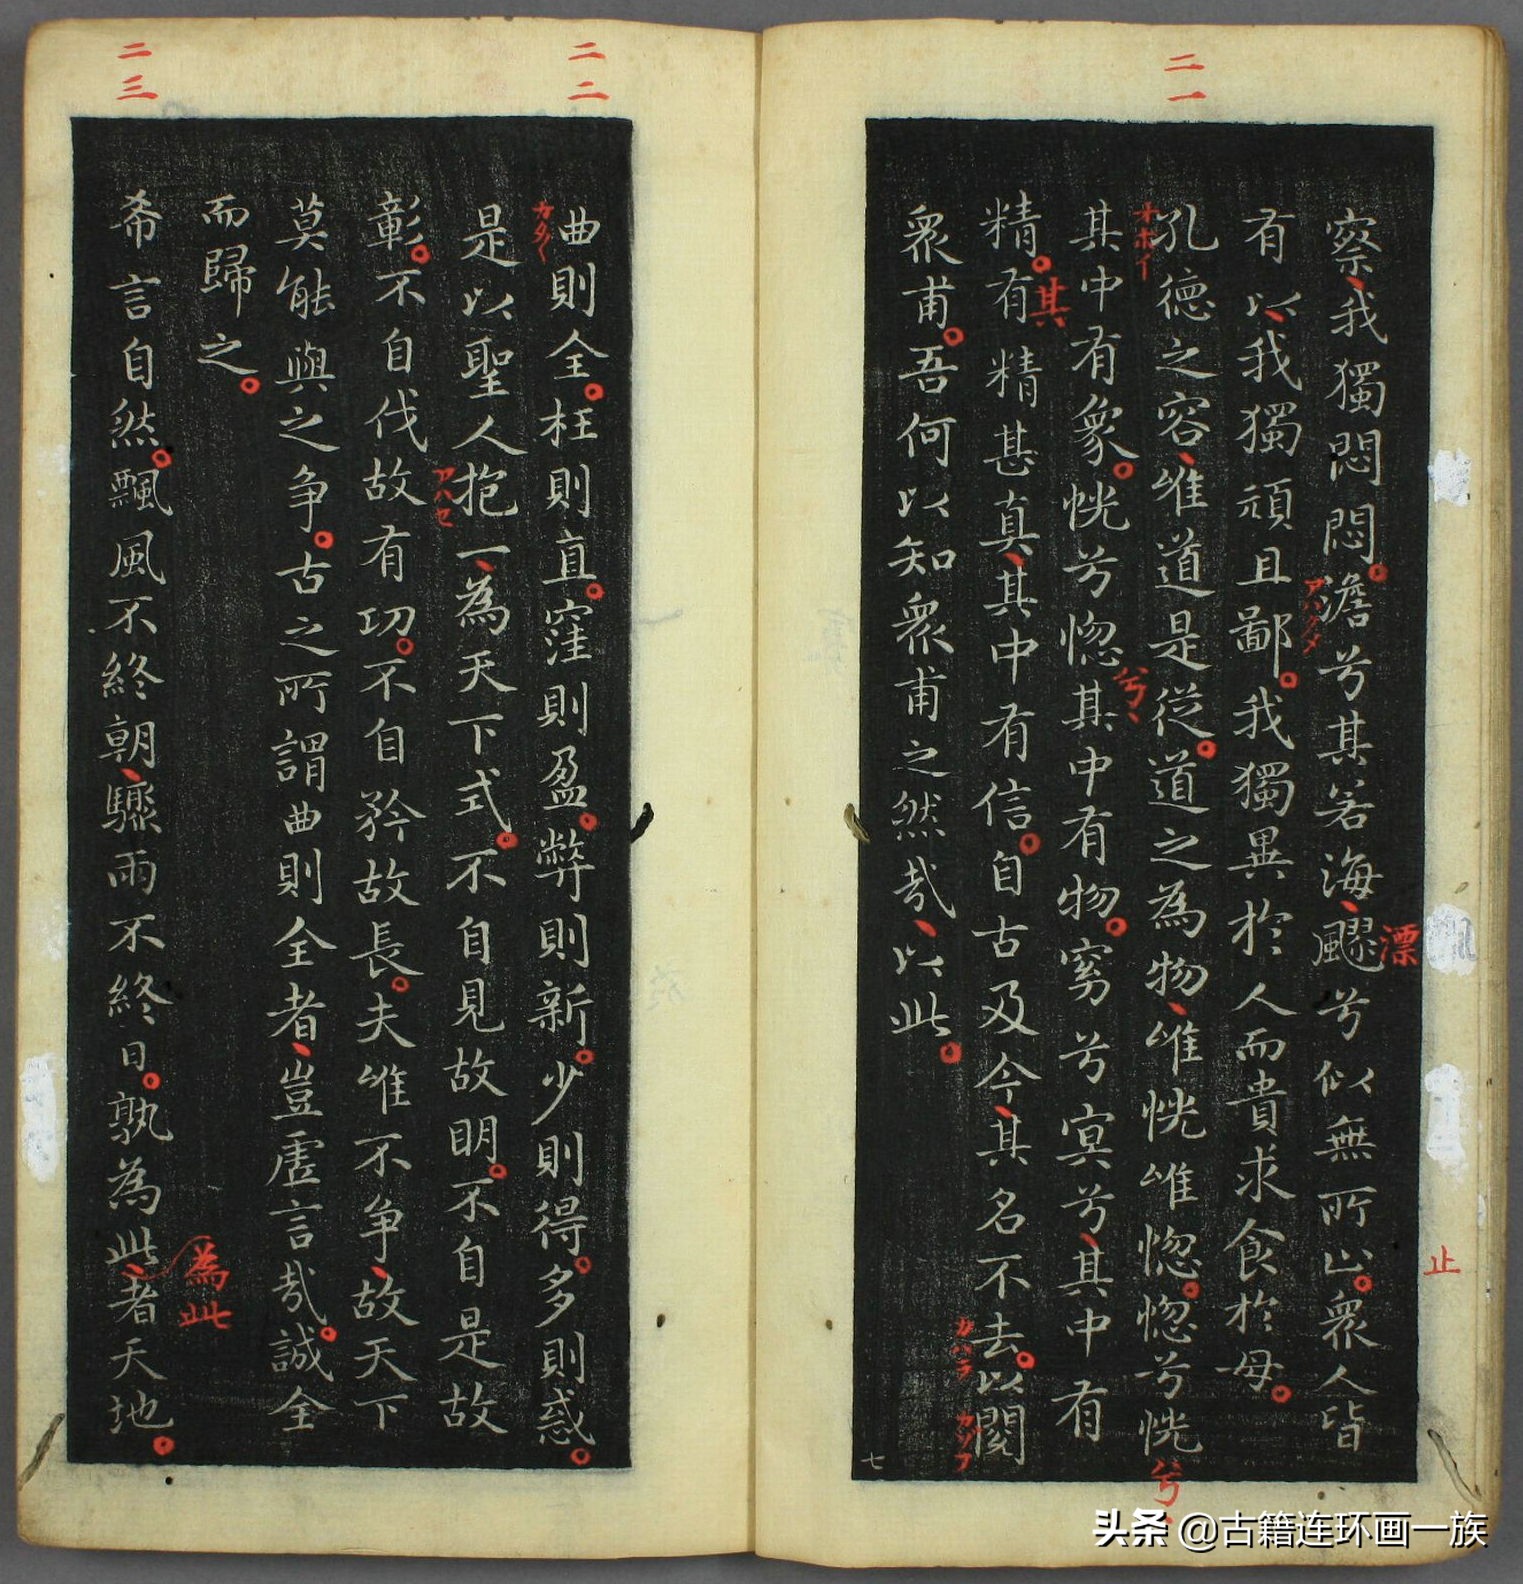 二一
察、我獨悶悶。澹兮其若海、飂兮似無所止。衆人皆
漂
止
有以、我獨頑且鄙。我獨異於人而貴求食於母。
孔德之容、唯道是從。道之為物、唯恍唯惚。惚兮恍
オホイ
兮、
其中有象。恍兮惚其中有物。窈兮冥兮、其中有
兮、
精。有精甚真、其中有信。自古及今、其名不去。以閱
其
衆甫。吾何以知衆甫之然哉、以此。
七
二二
曲則全。枉則直。窪則盈。弊則新。少則得。多則惑。
是以聖人抱一、為天下式。不自見故明。不自是故
アハセ
彰。不自伐故有功。不自矜故長。夫唯不争、故天下
莫能與之争。古之所謂曲則全者、豈虛言哉。誠全
而歸之。
二三
希言自然。飄風不終朝、驟雨不終日。孰為此、者天地。
為此
头条 @古籍连环画一族